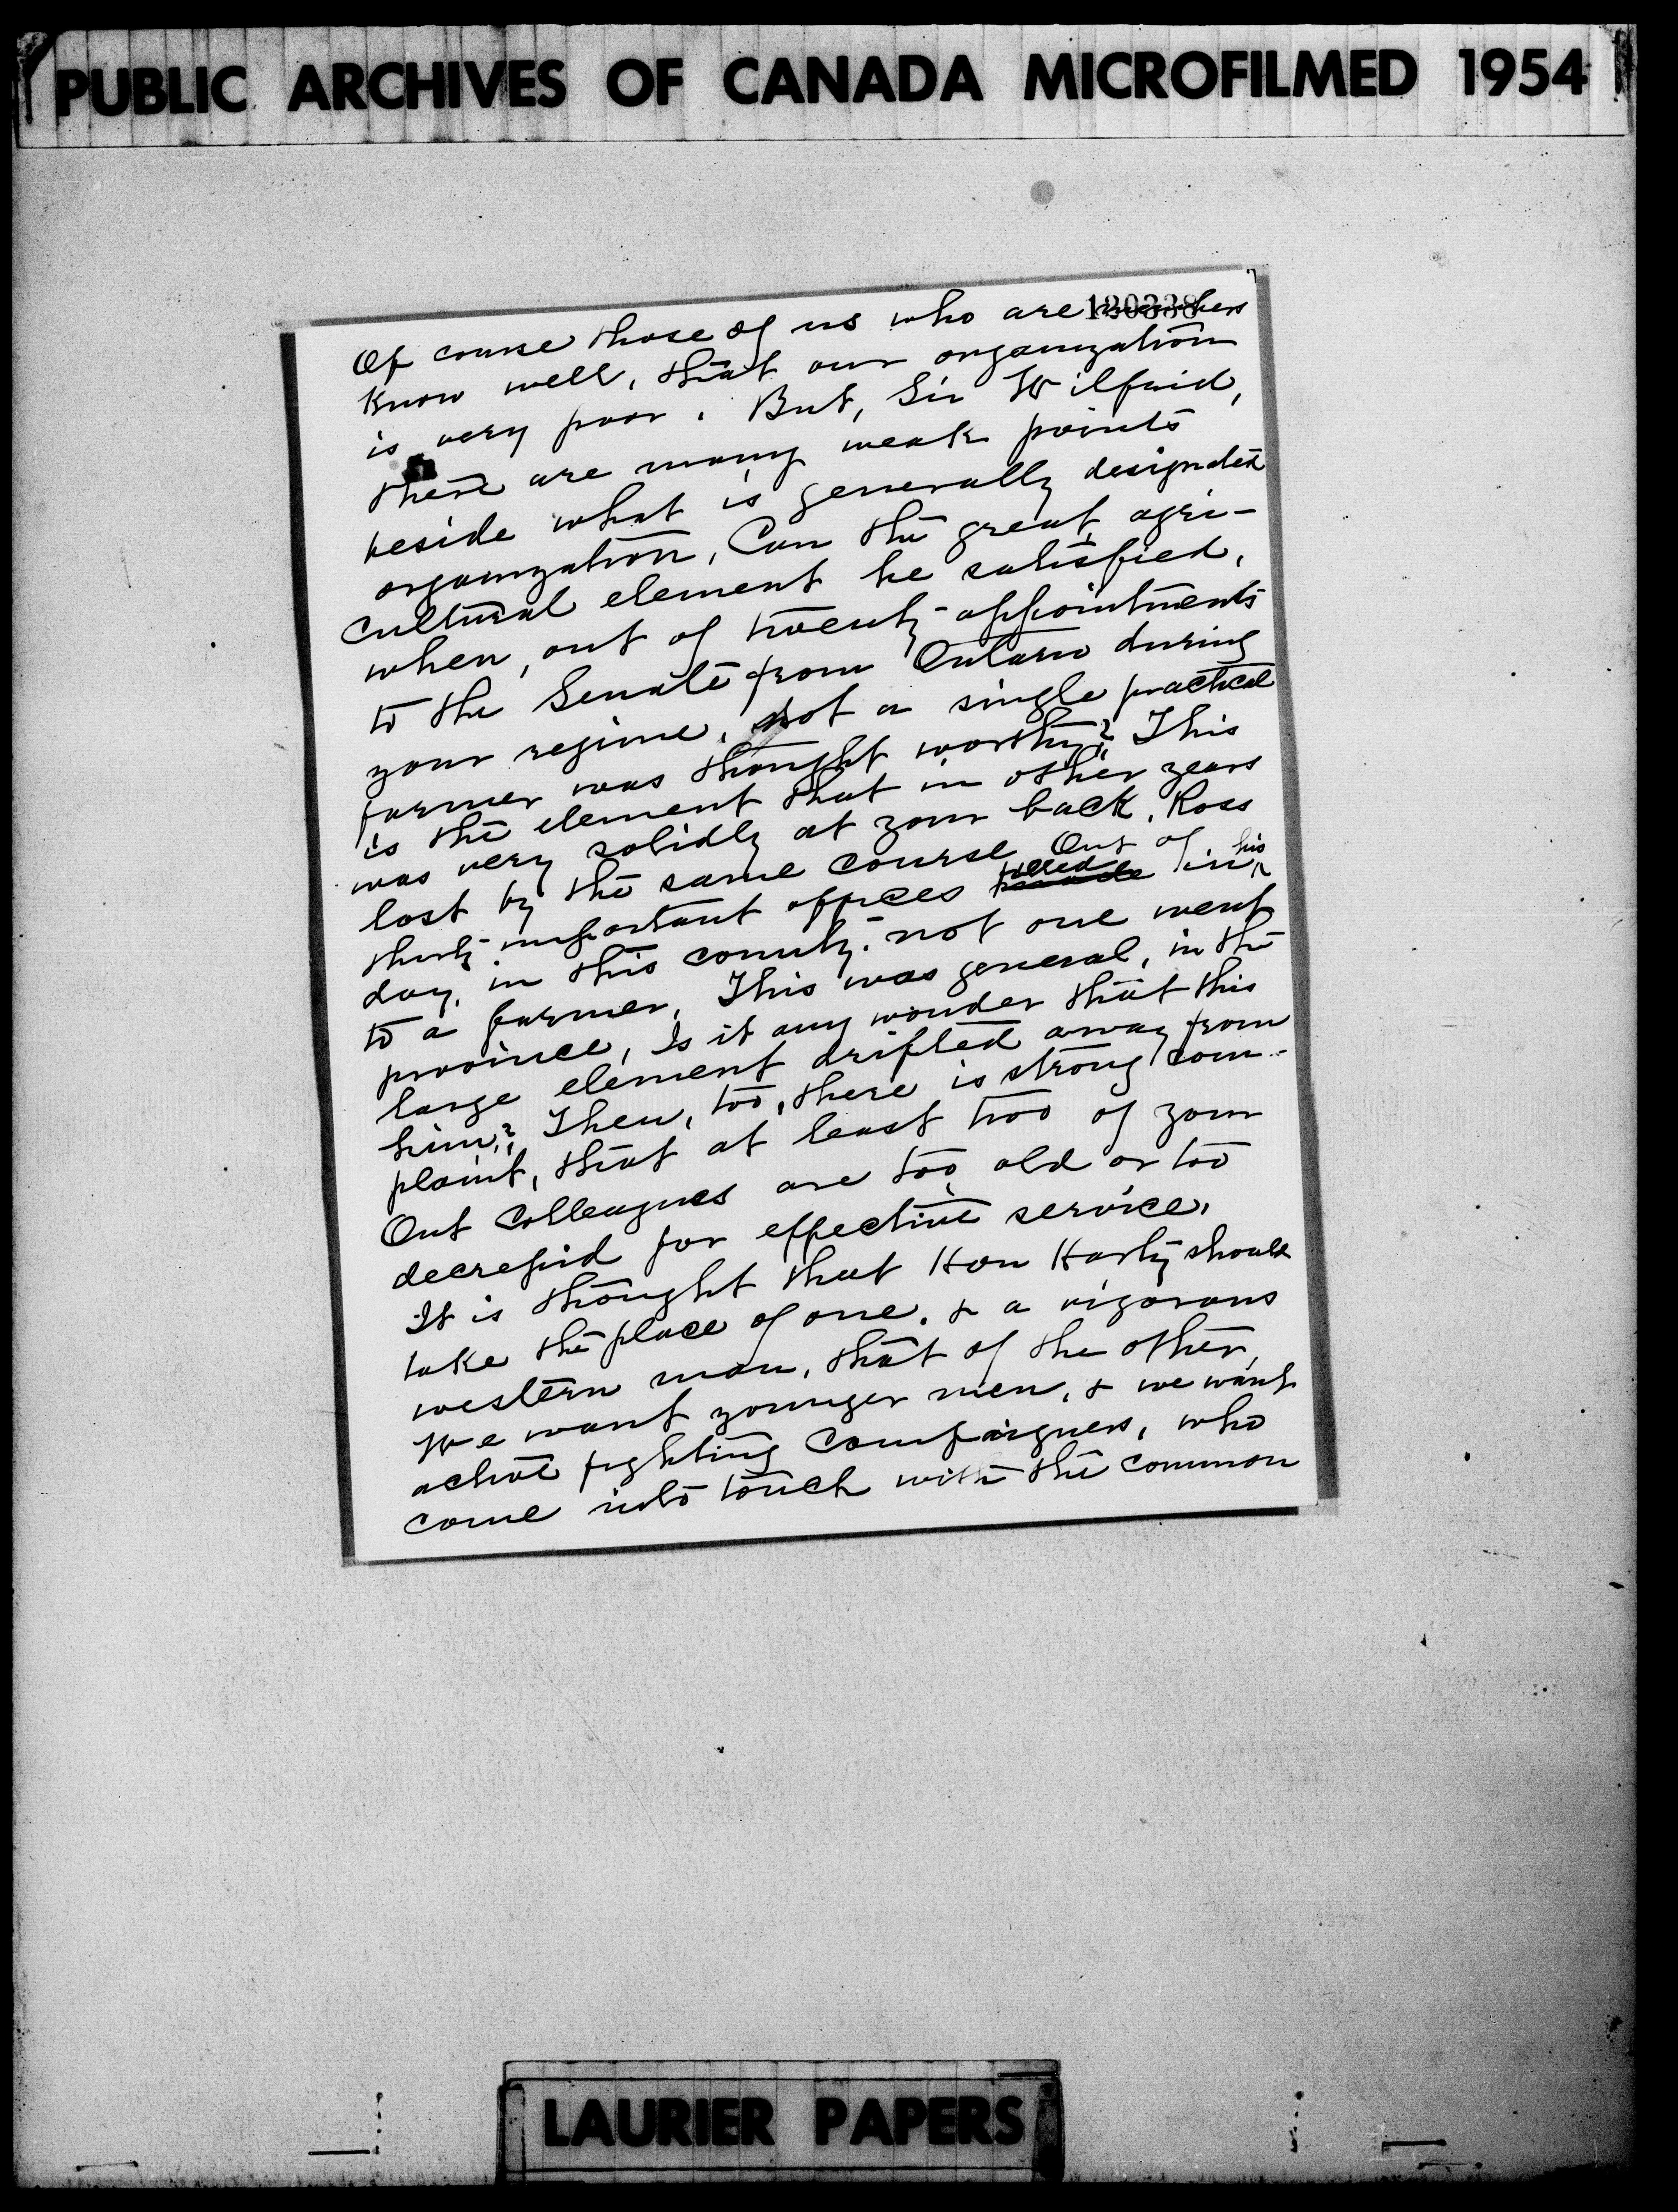 PUBLIC ARCHIVES OF CANADA MICROFILMED 1954
120338
Of course those of us who are members
know well, that our organization
is very poor. But, Sir Wilfrid,
there are many weak points
beside what is generally designated
organization, Can the great agri-
cultural element be satisfied,
when, out of twenty appointments
to the Senate from Ontario during
your regime, not a single practical
farmer was thought worthy? This
is the element that in other years
was very solidly at your back. Ross
lost by the same course. Out of
thirty important offices filled in his
day, in this county, not one went
to a farmer, This was general, in the
province, Is it any wonder that this
large element drifted away from
him? Then, too, there is strong com-
plaint, that at least two of your
Ont Colleagues are too old or too
decrepid for effective service,
It is thought that Hon Harty should
take the place of one, & a vigorous
western man, that of the other,
We want younger men, & we want
active fighting campaigners, who
come into touch with the common
LAURIER PAPERS